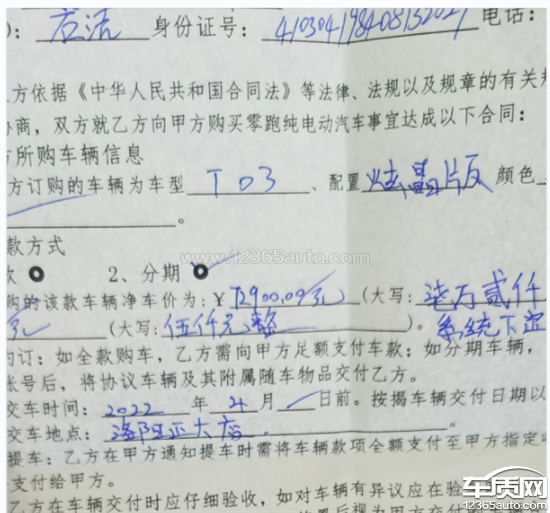 ): 身份证号: 电话:
方依据《中华人民共和国合同法》等法律、法规以及规章的有关规
协商，双方就乙方向甲方购买零跑纯电动汽车事宜达成以下合同:
方所购车辆信息
方订购的车辆为车型 T03 、配置 炫晶版 颜色
。
www.12365auto.com
款方式
款 2、分期
购的该款车辆净车价为:￥ 72900.00元 (大写: 柒万贰仟
元 (大写: 伍仟元整 )。系统下定
约订: 如全款购车，乙方需向甲方足额支付车款; 如分期车辆，
账号后，将协议车辆及其附属随车物品交付乙方。
交车时间: 2022 年 4 月 日前. 按揭车辆交付日期以
交车地点: 洛阳正大店.
提车: 乙方在甲方通知提车时需将车辆款项全额支付至甲方指定收
支付给甲方。
乙方在车辆交付时应仔细验收，如对车辆有异议应在验
后视为甲方交付
车质网
12365auto.com